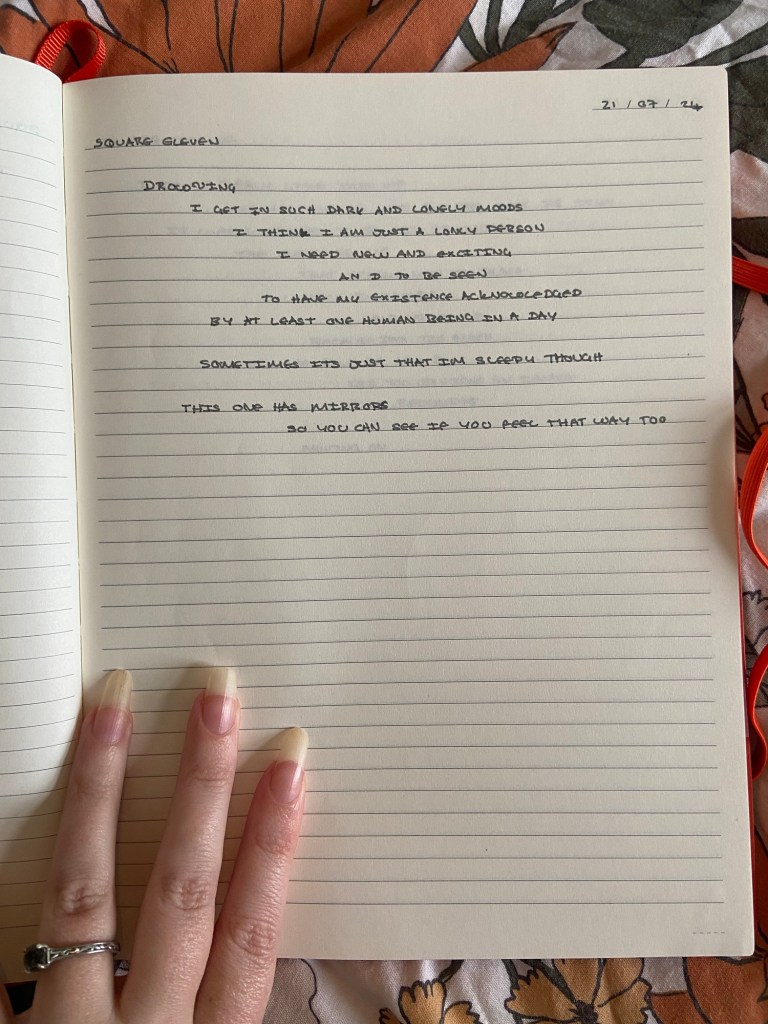 21 / 07 / 24
SQUARE ELEVEN
DROWNING
I GET IN SUCH DARK AND LONELY MOODS
I THINK I AM JUST A LONELY PERSON
I NEED NEW AND EXCITING
AN D TO BE SEEN
TO HAVE MY EXISTENCE ACKNOWLEDGED
BY AT LEAST ONE HUMAN BEING IN A DAY
SOMETIMES ITS JUST THAT IM SLEEPY THOUGH
THIS ONE HAS MIRRORS
SO YOU CAN SEE IF YOU FEEL THAT WAY TOO